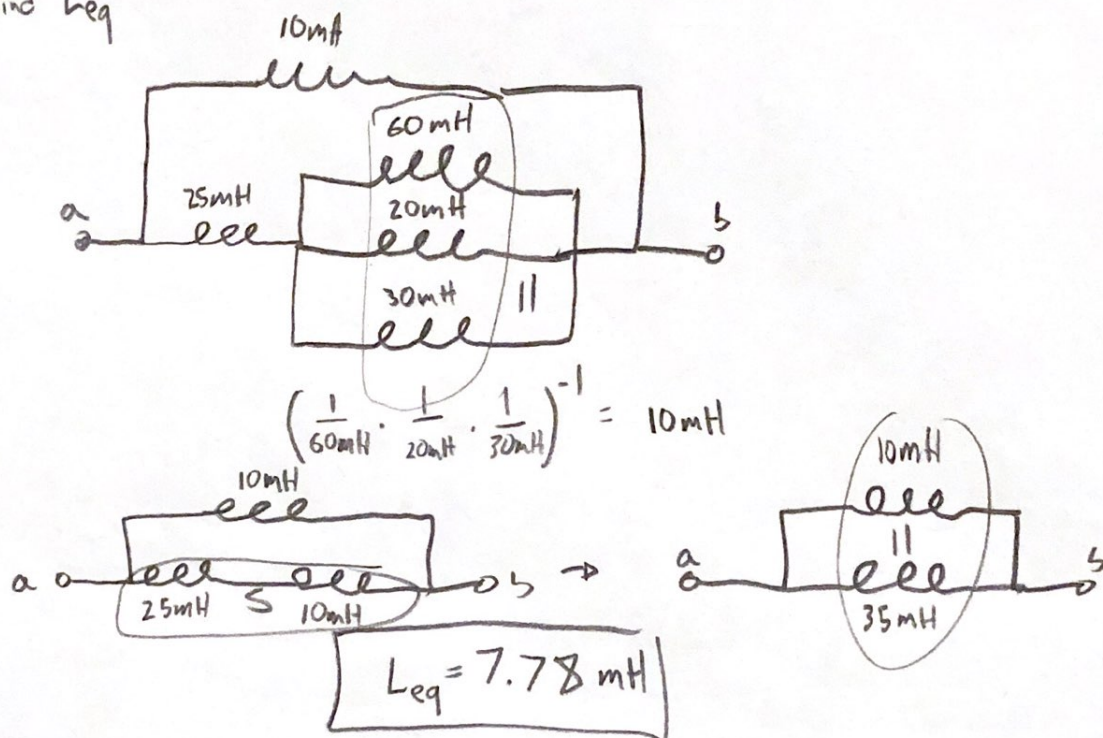 find Leq
10mH
60mH
25mH
20mH
a
b
30mH
||
(1/60mH · 1/20mH · 1/30mH)^-1 = 10mH
10mH
a
b
25mH S 10mH
→
10mH
a
||
b
35mH
Leq = 7.78 mH